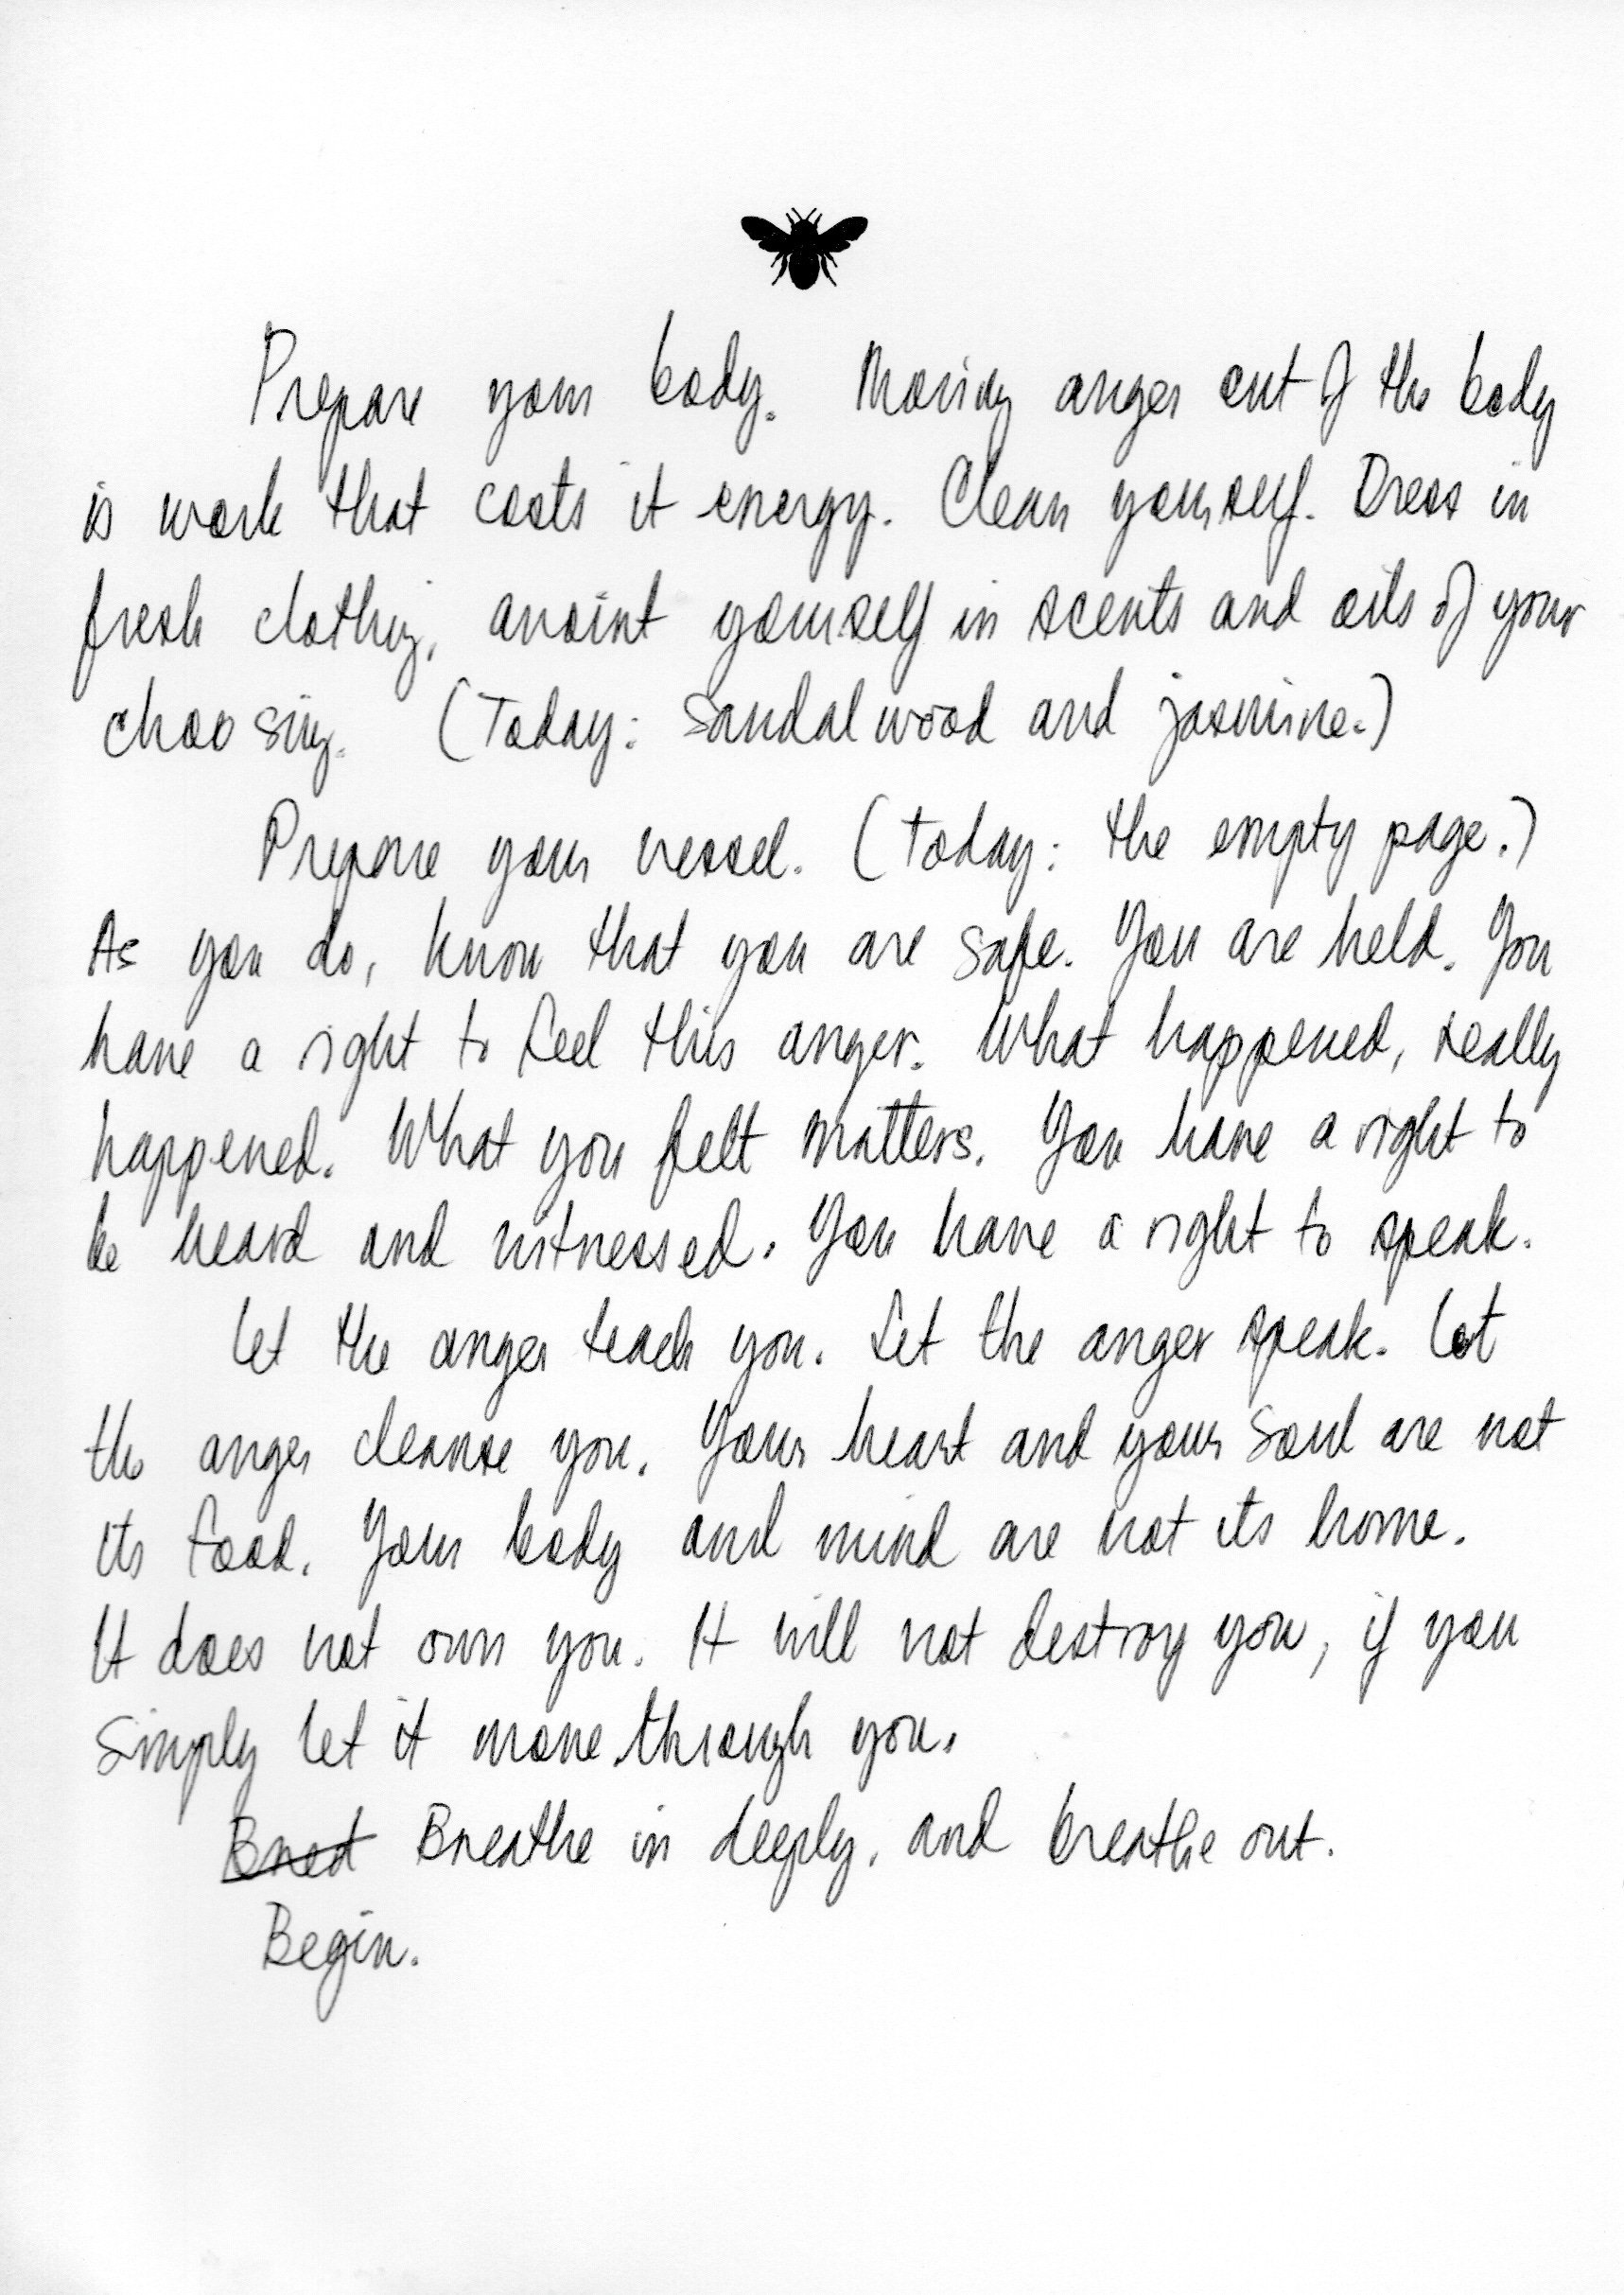 Prepare your body. Moving anger out of the body
is work that costs it energy. Clean yourself. Dress in
fresh clothing, anoint yourself in scents and oils of your
choosing. (Today: Sandalwood and jasmine.)
Prepare your vessel. (Today: the empty page.)
As you do, know that you are safe. You are held. You
have a right to feel this anger. What happened, really
happened. What you felt matters. You have a right to
be heard and witnessed. You have a right to speak.
Let the anger teach you. Let the anger speak. Let
the anger cleanse you. Your heart and your soul are not
its food. Your body and mind are not its home.
It does not own you. It will not destroy you, if you
simply let it move through you.
Breathe in deeply, and breathe out.
Begin.